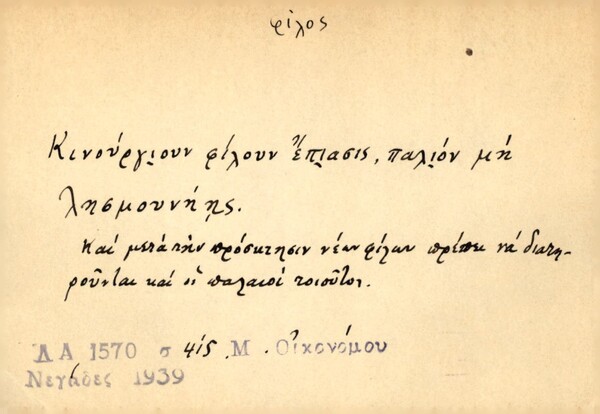 φίλος
Κινούργιουν φίλουν ἔπιασις, παλιόν μή
λησμουνήῃς.
Καί μετά τήν πρόσκτησιν νέων φίλων πρέπει νά διατη-
ροῦνται καί οἱ παλαιοί τοιοῦτοι.
ΛΑ 1570 σ 415. Μ. Οἰκονόμου
Νεγάδες 1939